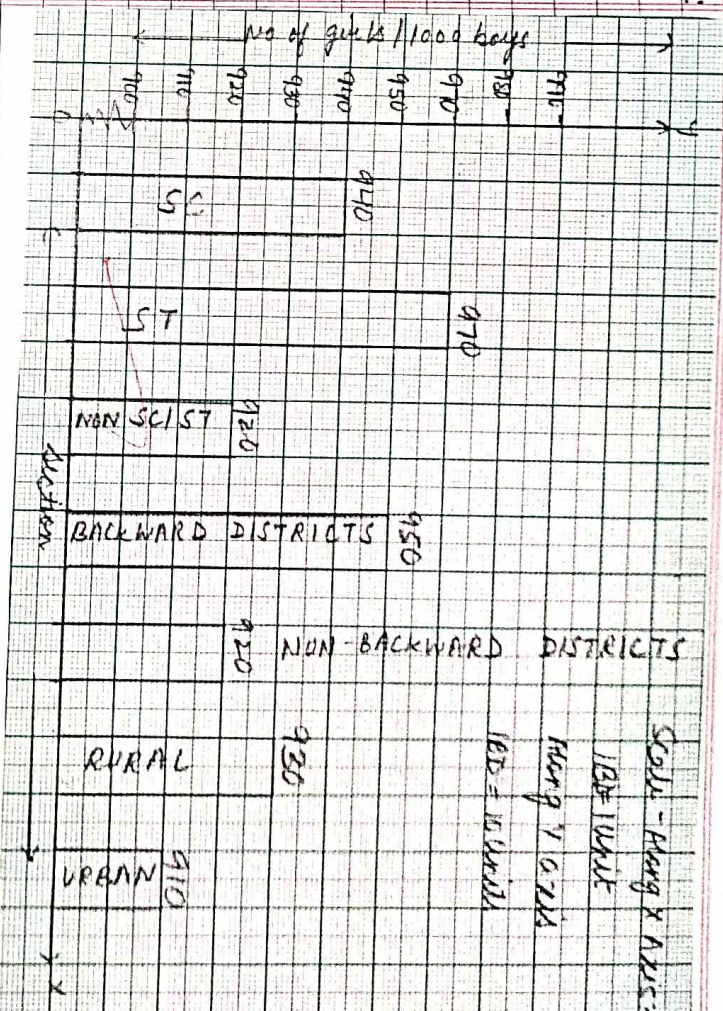 No of girls / 1000 boys
Y
990
980
970
950
940
930
920
910
900
0
940
SC
970
ST
920
NON SC/ST
950
BACKWARD DISTRICTS
920
NON-BACKWARD DISTRICTS
930
RURAL
910
URBAN
Section
X
Scale - Along X Axis:
1BD = 1 Unit
Along Y axis
1BD = 10 Units